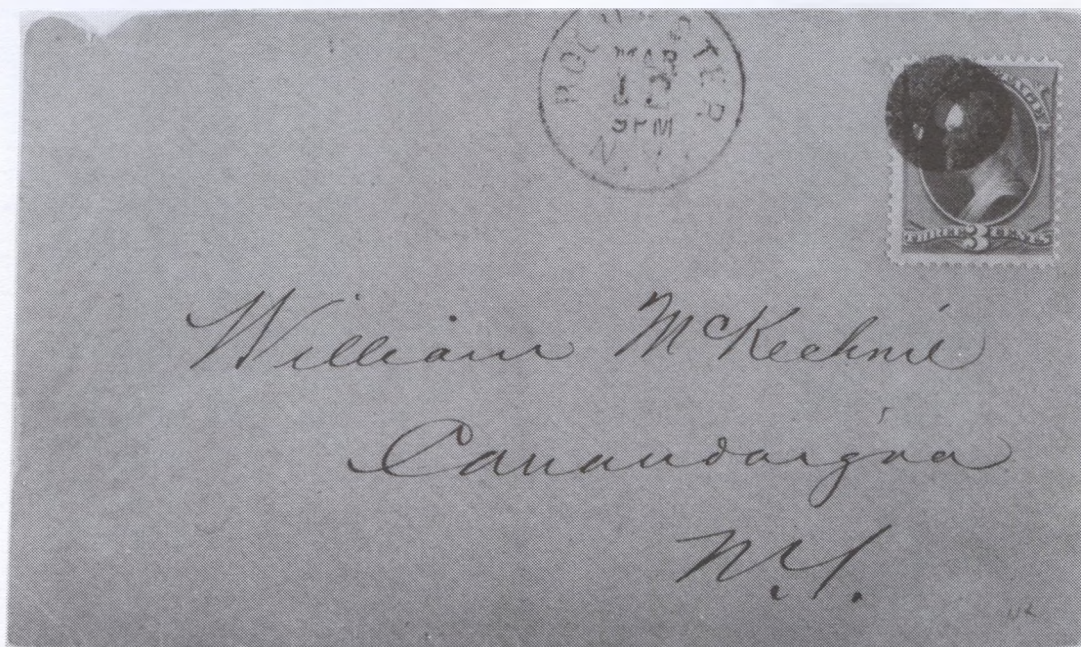 ROCHESTER
MAR
9 PM
N.Y.
POSTAGE
THREE 3 CENTS
William McKechnie
Canandaigua
N.Y.